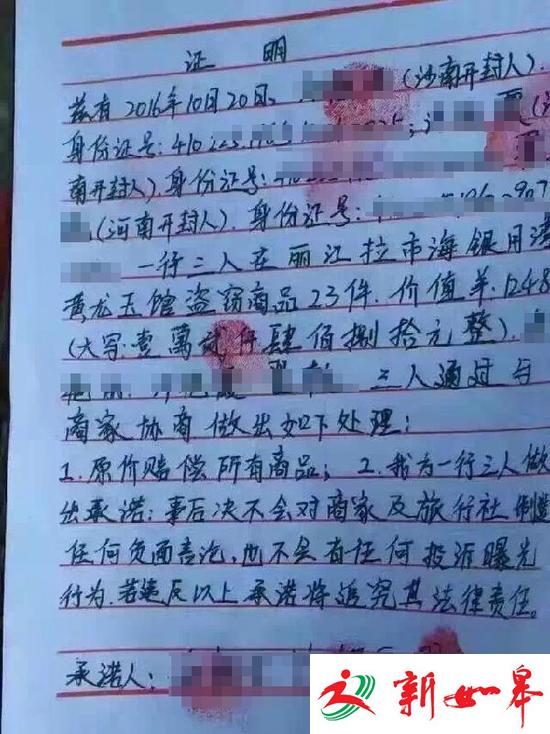 证 明
兹有2016年10月20日。(河南开封人).
身份证号:
南开封人). 身份证号:
(河南开封人). 身份证号:
一行三人在丽江拉市海银
黄龙玉馆盗窃商品23件. 价值 1248
(大写:壹萬贰仟肆佰捌拾元整).
三人通过与
商家协商做出如下处理:
1. 原价赔偿所有商品; 2. 我为一行三人做
出承诺: 事后决不会对商家及旅行社制造
任何负面言论, 也不会有任何投诉曝光
行为. 若违反以上承诺将追究其法律责任。
承诺人:
新如皋